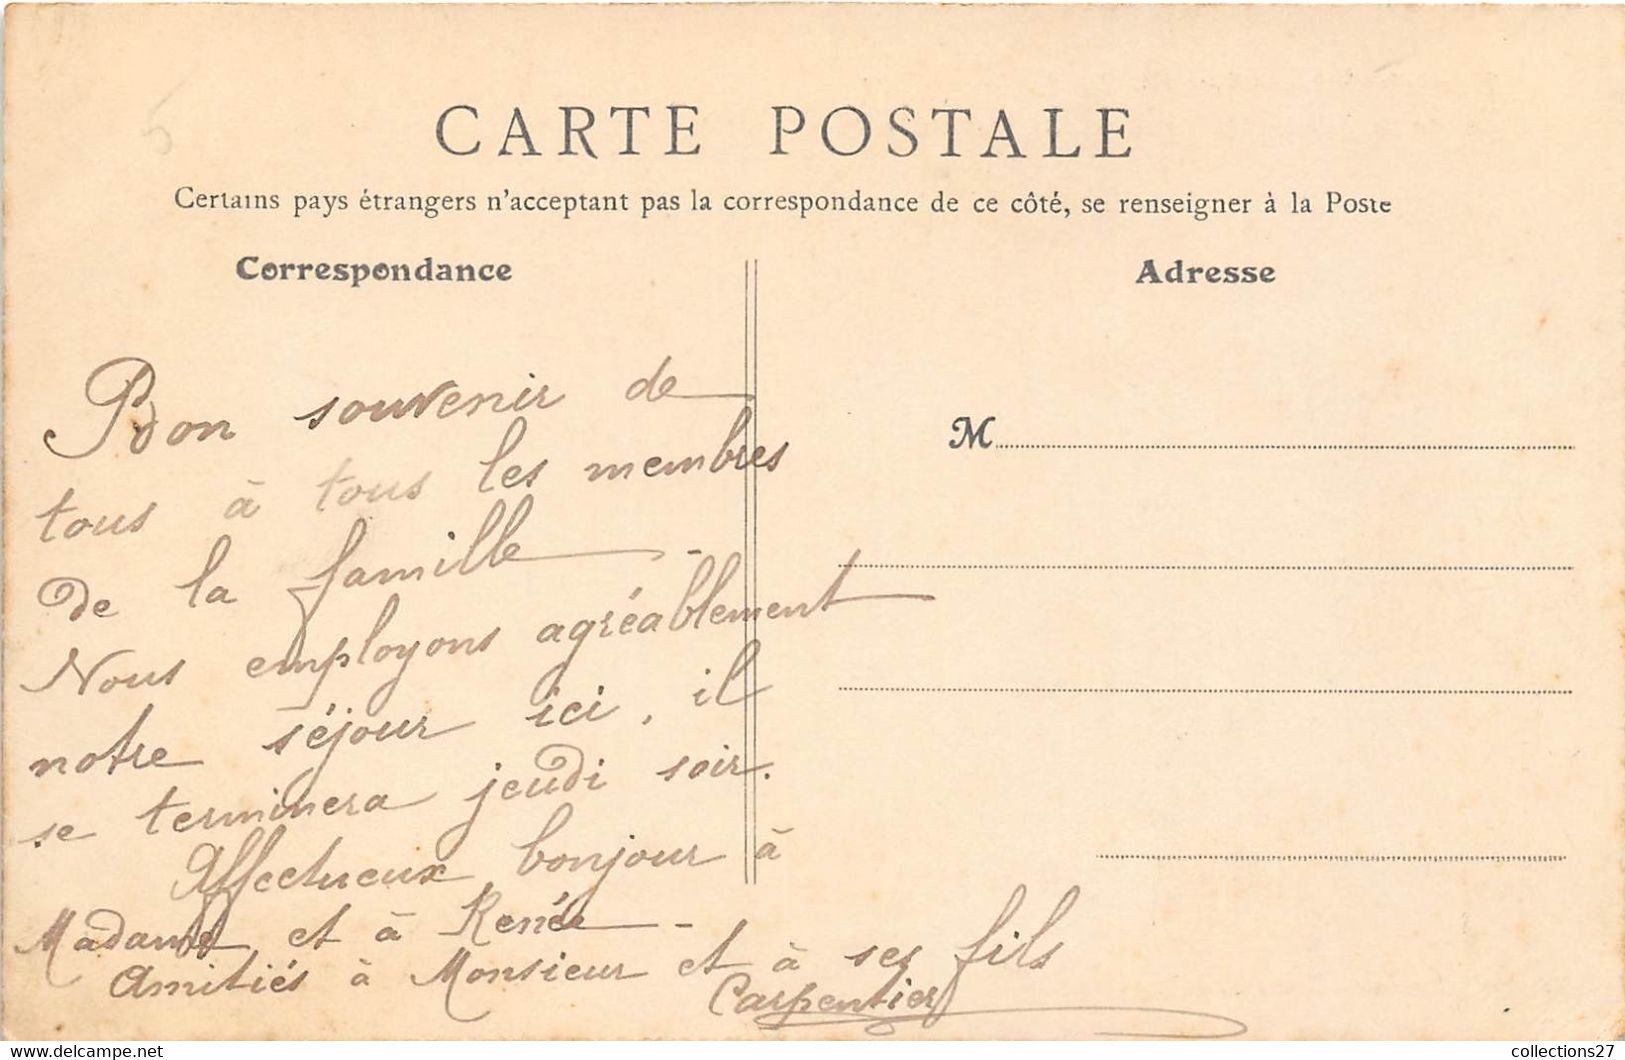 CARTE POSTALE
Certains pays étrangers n'acceptant pas la correspondance de ce côté, se renseigner à la Poste
Correspondance
Adresse
M
Bon souvenir de
tous à tous les membres
de la famille -
Nous employons agréablement
notre séjour ici, il
se terminera jeudi soir.
Affectueux bonjour à
Madame et à Renée -
Amitiés à Monsieur et à ses fils
Carpentier
5
collections27